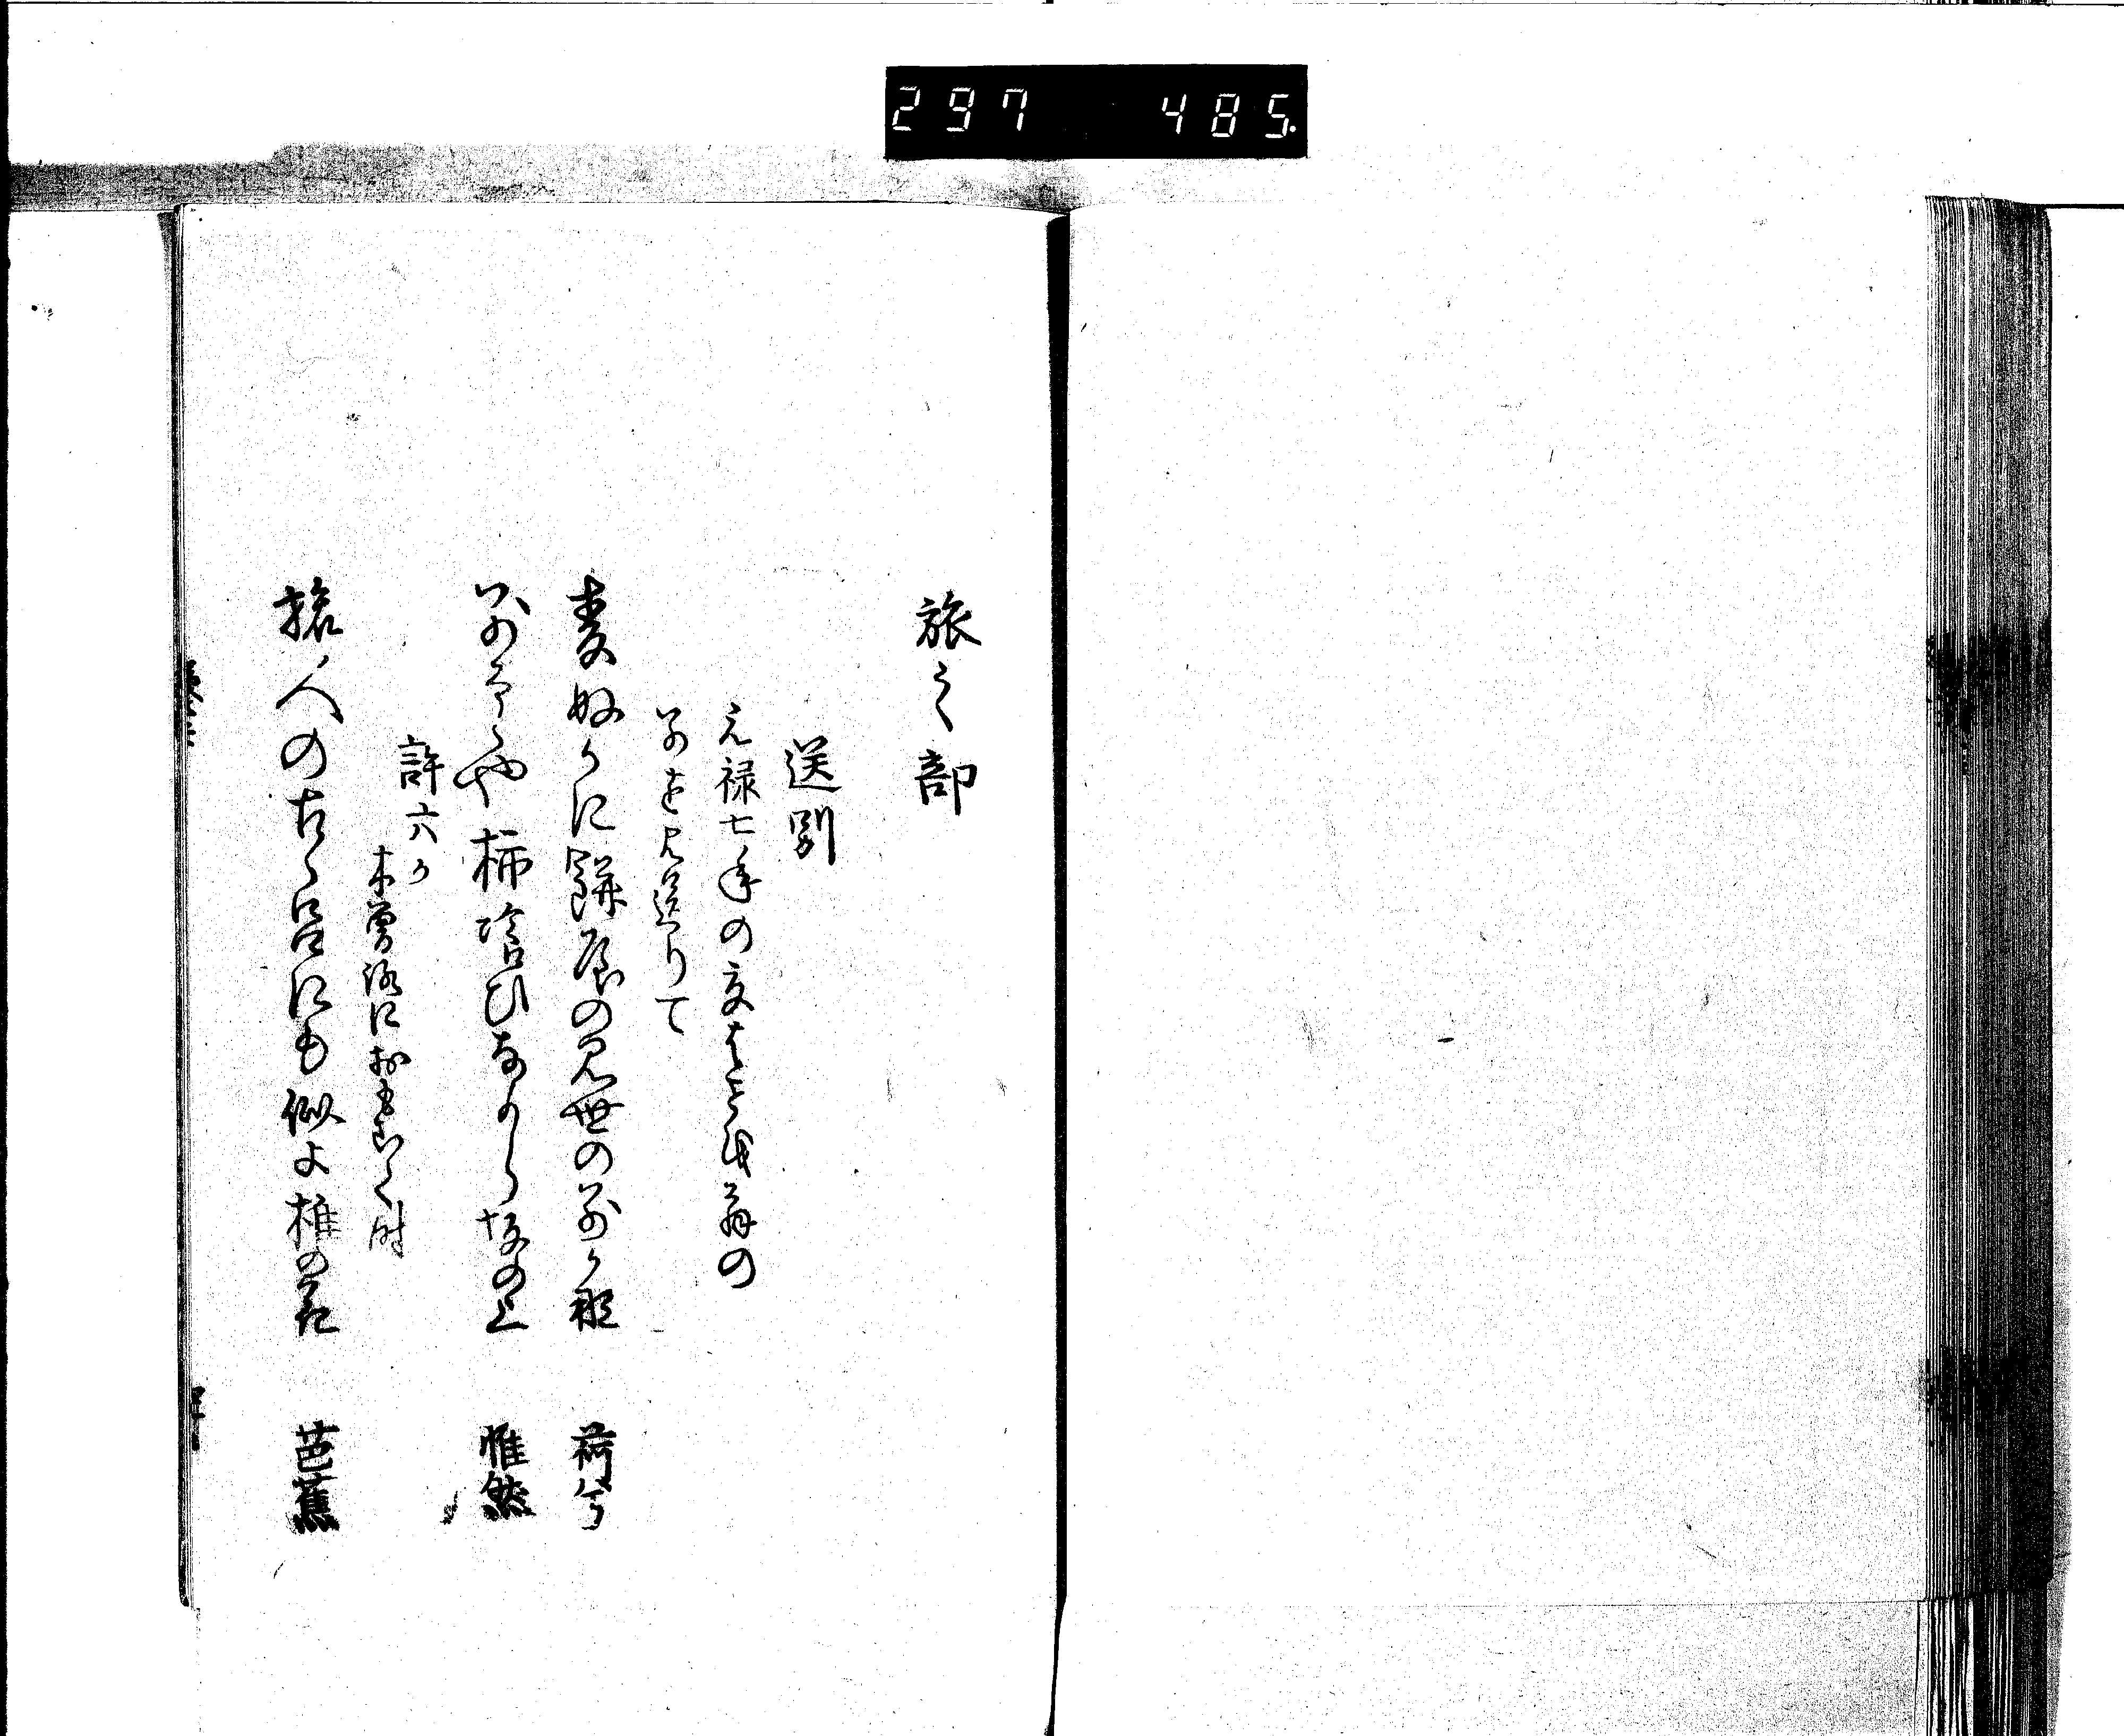 297 485.
旅之部
送別
元禄七年の夏はせを翁の
別を見送りて
麦ぬかに餅屋の見世の別か那 荷兮
別るゝや柿喰ひなから坂の上 惟然
許六か
木曽路におもむく時
旅人のこゝろにも似よ椎の花 芭蕉